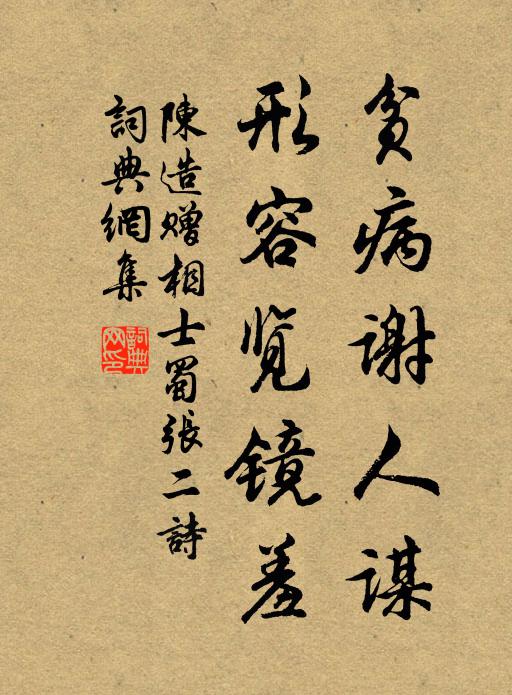 贫病謝人謀
形容览镜羞
陳造贈相士蜀張二詩
詞典網集
詞典网印